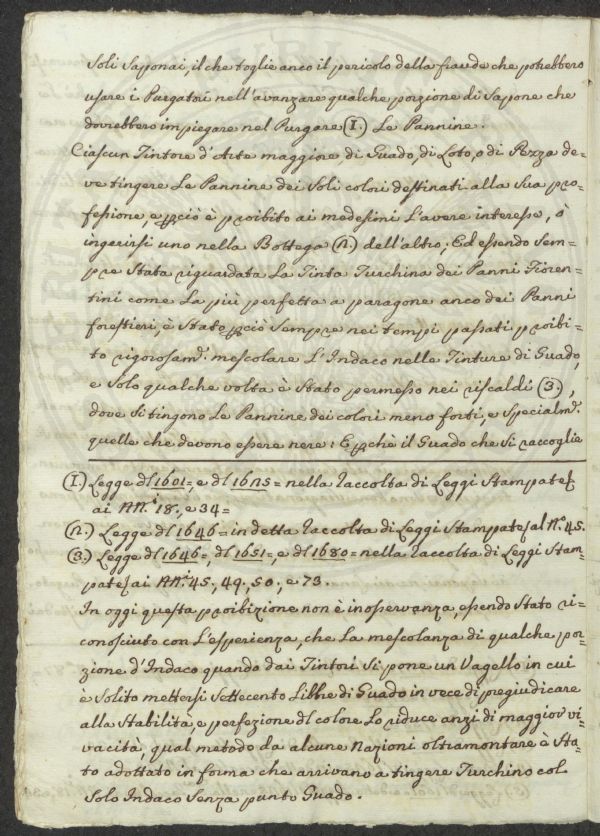 Soli Saponai, il che toglie anco il pericolo della fraude che potrebbero
usare i Purgatori nell'avanzare qualche porzione di Sapone che
dovrebbero impiegare nel Purgare (1.) Le Pannine.
Ciascun Tintore d'Arte maggiore di Guado, di Loto, o di Pezza de=
ve tingere Le Pannine dei Soli colori destinati alla Sua pro=
fessione, e pciò è proibito ai medesimi L'avere interesse, ò
ingerirsi uno nella Bottega (2.) dell'altro; Ed essendo Sem=
pre Stata riguardata La Tinta Turchina dei Panni Fioren=
tini come La più perfetta a paragone anco dei Panni
forestieri, è State pciò Sempre nei tempi passati proibi=
to rigorosam.e mescolare L'Indaco nelle Tinture di Guado,
e Solo qualche volta è Stato permesso nei riscaldi (3.),
dove Si tingono Le Pannine dei colori meno forti, e Specialm.e
quelle che devono essere nere: E pchè il Guado che Si raccoglie
(1.) Legge dl 1601=, e dl 1625= nella Raccolta di Leggi Stampate
ai NN.i 18., e 34=
(2.) Legge dl 1646= in detta Raccolta di Leggi Stampate al N.o 45.
(3.) Legge dl 1646=, dl 1651=, e dl 1680= nella Raccolta di Leggi Stam=
pate ai NN.i 45., 49., 50., e 73.
In oggi questa proibizione non è in osservanza, essendo Stato ri=
conosciuto con L'esperienza, che La mescolanza di qualche por=
zione d'Indaco quando dai Tintori Si pone un Vagello in cui
è Solito mettersi Settecento Libbe di Guado in vece di pregiudicare
alla Stabilità, e perfezione dl colore Lo riduce anzi di maggior vi=
vacità, qual metodo da alcune Nazioni oltramontane è Sta=
to adottato in forma che arrivano a tingere Turchino col
Solo Indaco Senza punto Guado.